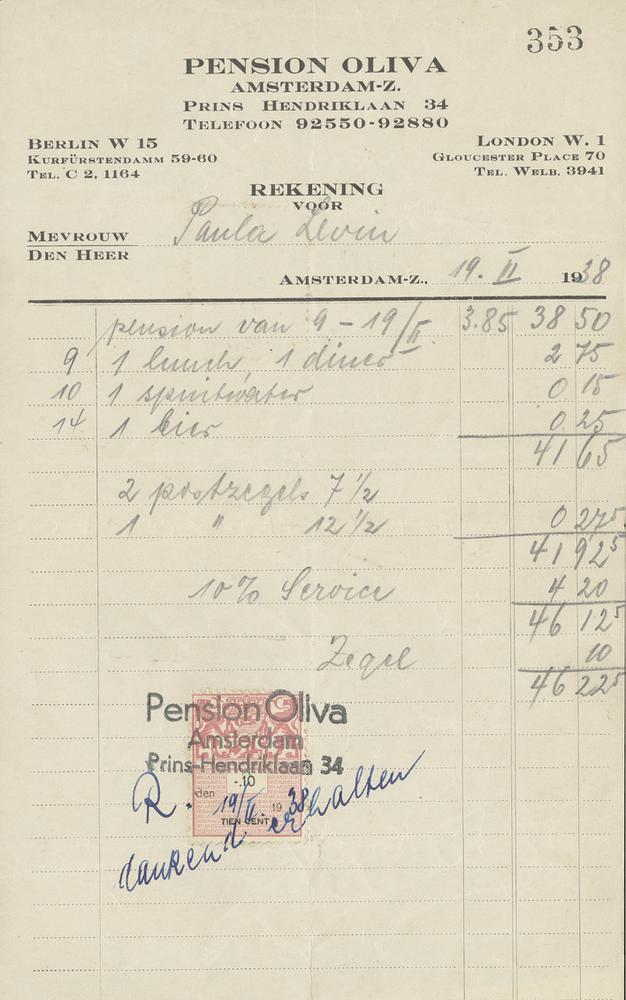 353
PENSION OLIVA
AMSTERDAM-Z.
PRINS HENDRIKLAAN 34
TELEFOON 92550-92880
BERLIN W 15
KURFÜRSTENDAMM 59-60
TEL. C 2, 1164
LONDON W. 1
GLOUCESTER PLACE 70
TEL. WELB. 3941
REKENING
VOOR
MEVROUW Paula Levin
DEN HEER
AMSTERDAM-Z., 19. II 1938
pension van 9 - 19/II 3.85 38 50
9 1 lunch, 1 diner 2 75
10 1 spuitwater 0 15
14 1 bier 0 25
41 65
2 postzegels 7 1/2
1 " 12 1/2 0 27⁵
41 92⁵
10% Service 4 20
46 12⁵
Zegel 10
46 22⁵
Pension Oliva
Amsterdam
Prins-Hendriklaan 34
-.10
den 19/II 1938
TIEN CENT
R. dankend erhalten